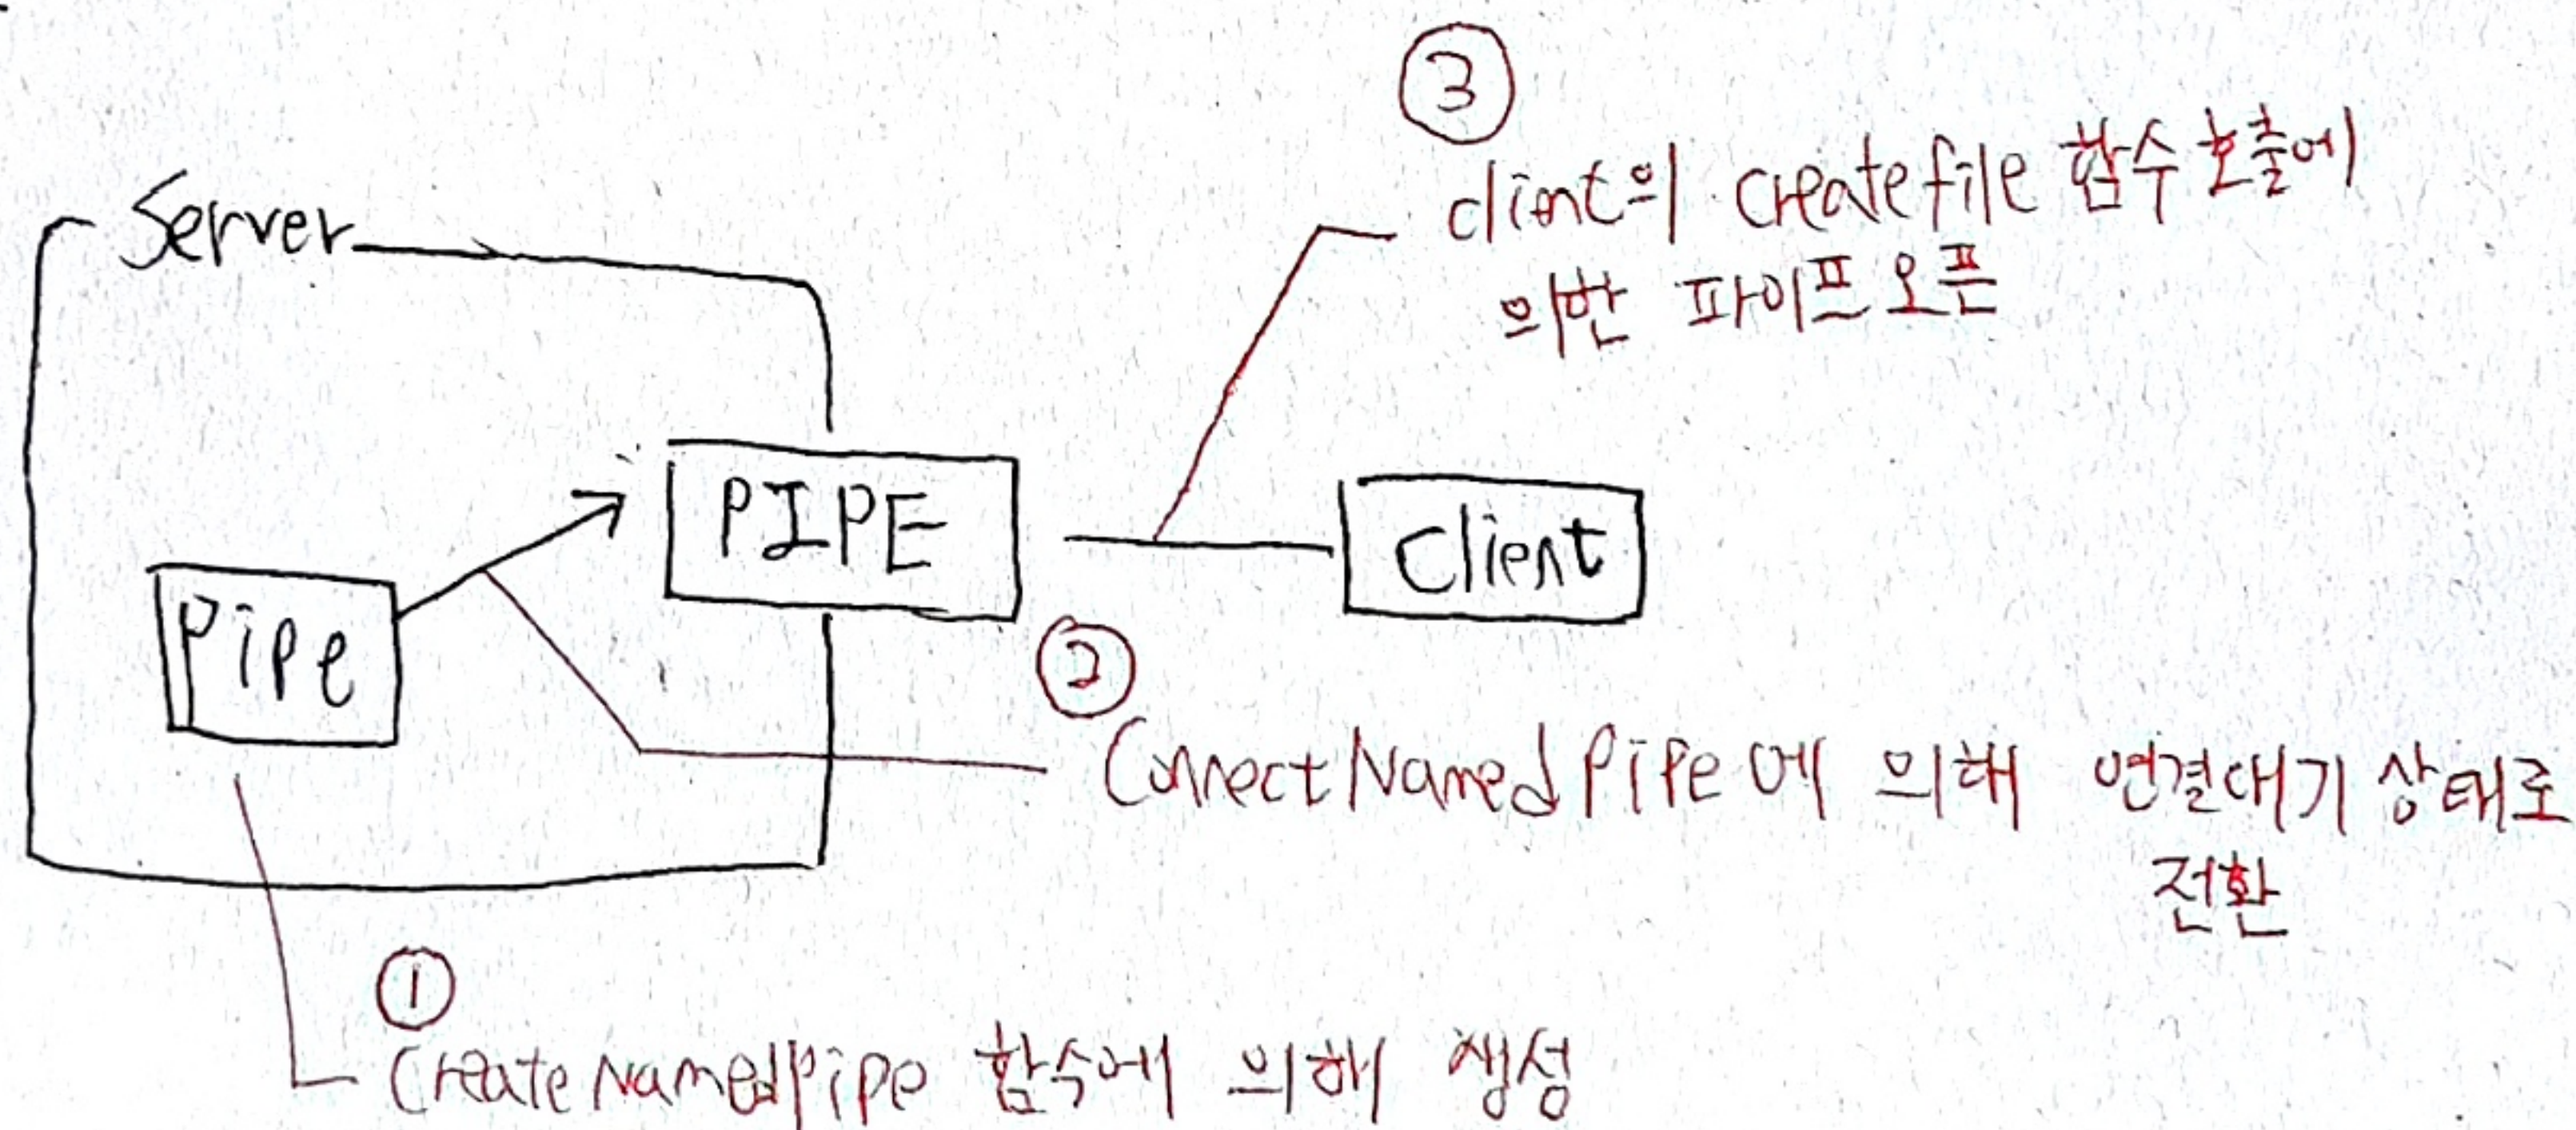 ③
client의 createfile 함수 호출에
의한 파이프 오픈
Server
PIPE
Client
Pipe
②
ConnectNamedPipe에 의해 연결대기 상태로
전환
①
CreateNamedPipe 함수에 의해 생성